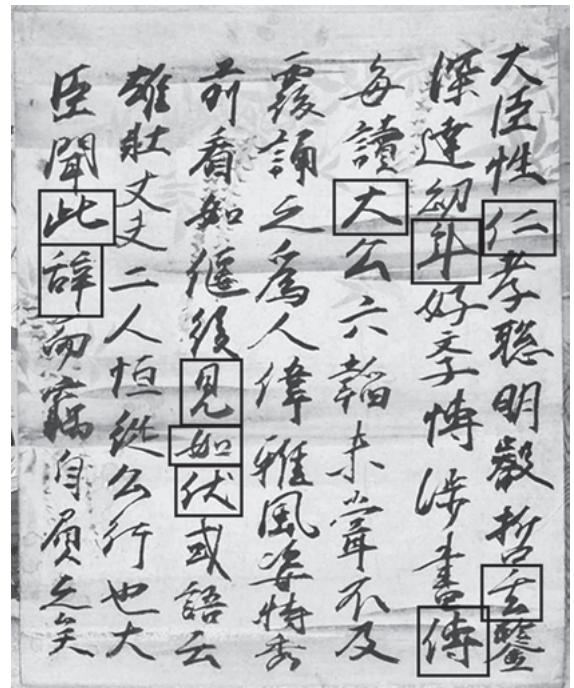 大臣性仁孝聰明叡哲玄鑒
深達幼年好斈博渉書傳
每讀大公六韜未甞不反
覆誦之爲人偉雅風姿特秀
前看如偃後見如伏或語云
雄壯丈夫二人恒從公行也大
臣聞此辞而竊自負之矣